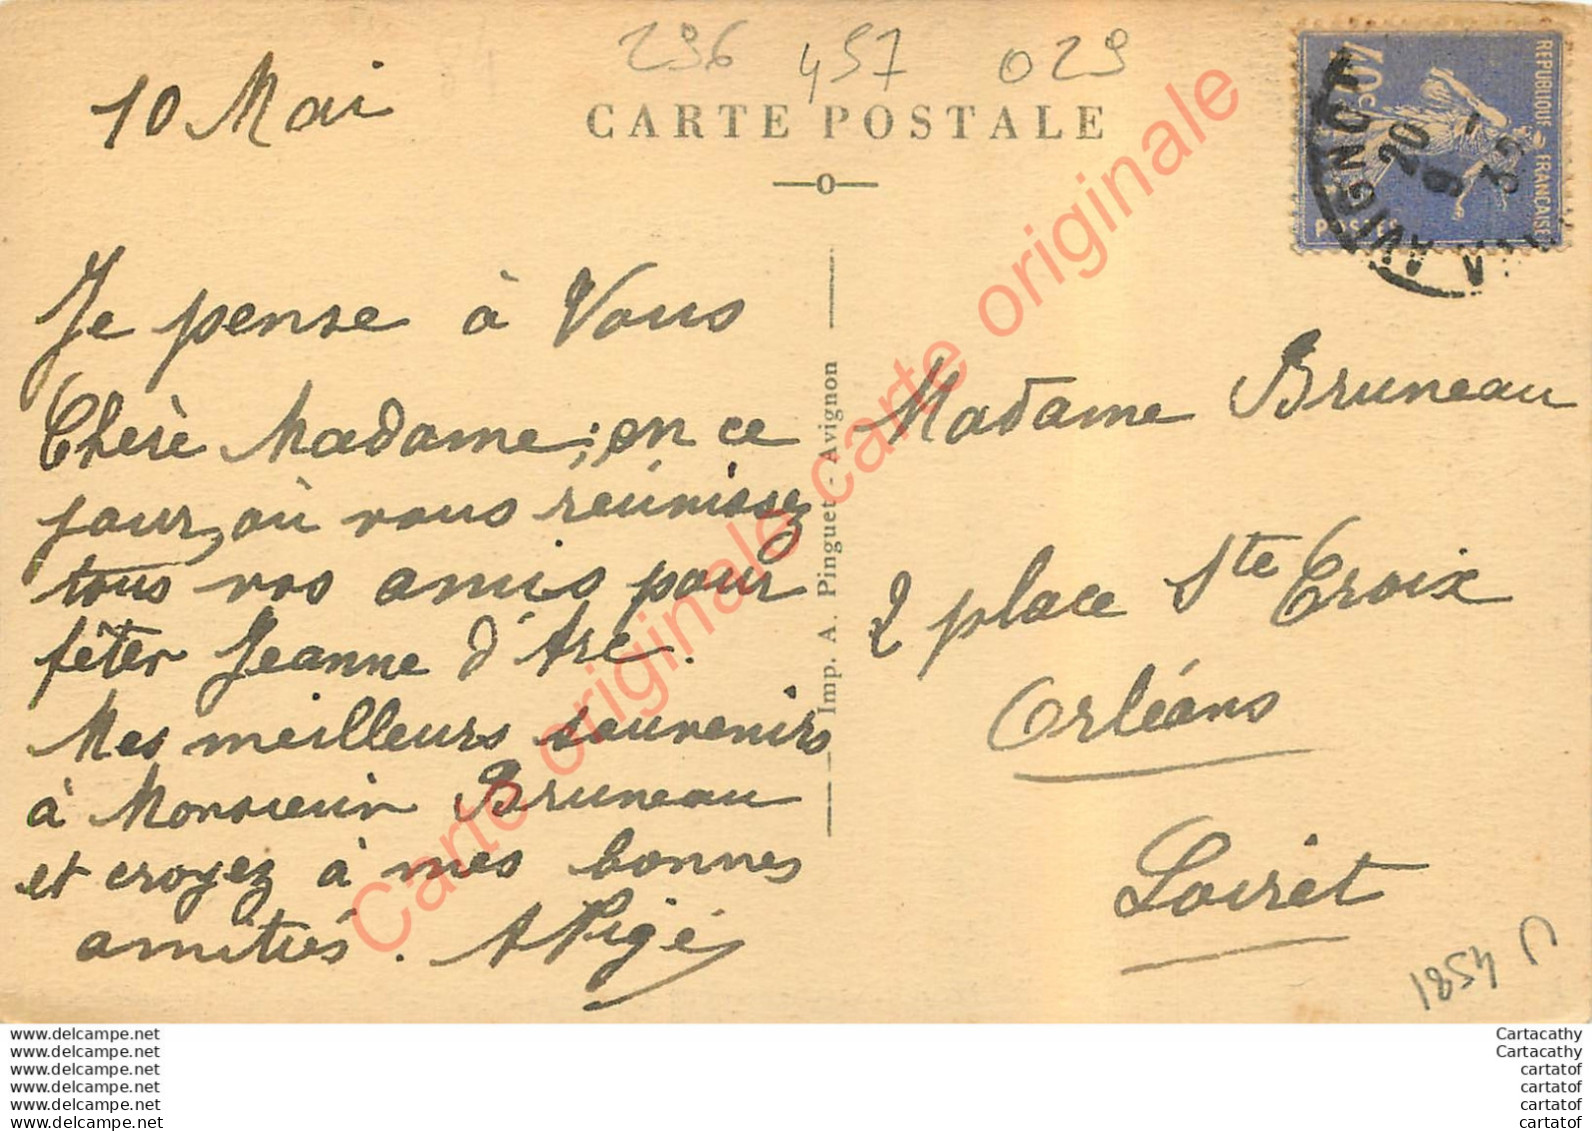 296 457 029
10 Mai
CARTE POSTALE
REPUBLIQUE FRANCAISE
40c
POSTES
AVIGNON
20
9 -
32
Je pense à Vous
Chère Madame, en ce
jour, où vous réunissez
tous vos amis pour
fêter Jeanne d'Arc.
Mes meilleurs souvenirs
à Monsieur Bruneau
et croyez à mes bonnes
amitiés. A Pigé
Imp. A. Pinguet - Avignon
Madame Bruneau
2 place Ste Croix
Orléans
Loiret
1854
Carte originale carte originale carte originale
www.delcampe.net
www.delcampe.net
www.delcampe.net
www.delcampe.net
www.delcampe.net
www.delcampe.net
Cartacathy
Cartacathy
cartatof
cartatof
cartatof
cartatof